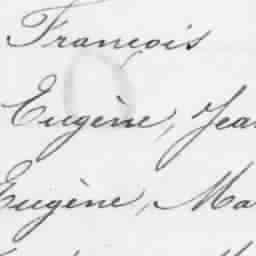 François
Eugène, Jea
Eugène, Ma